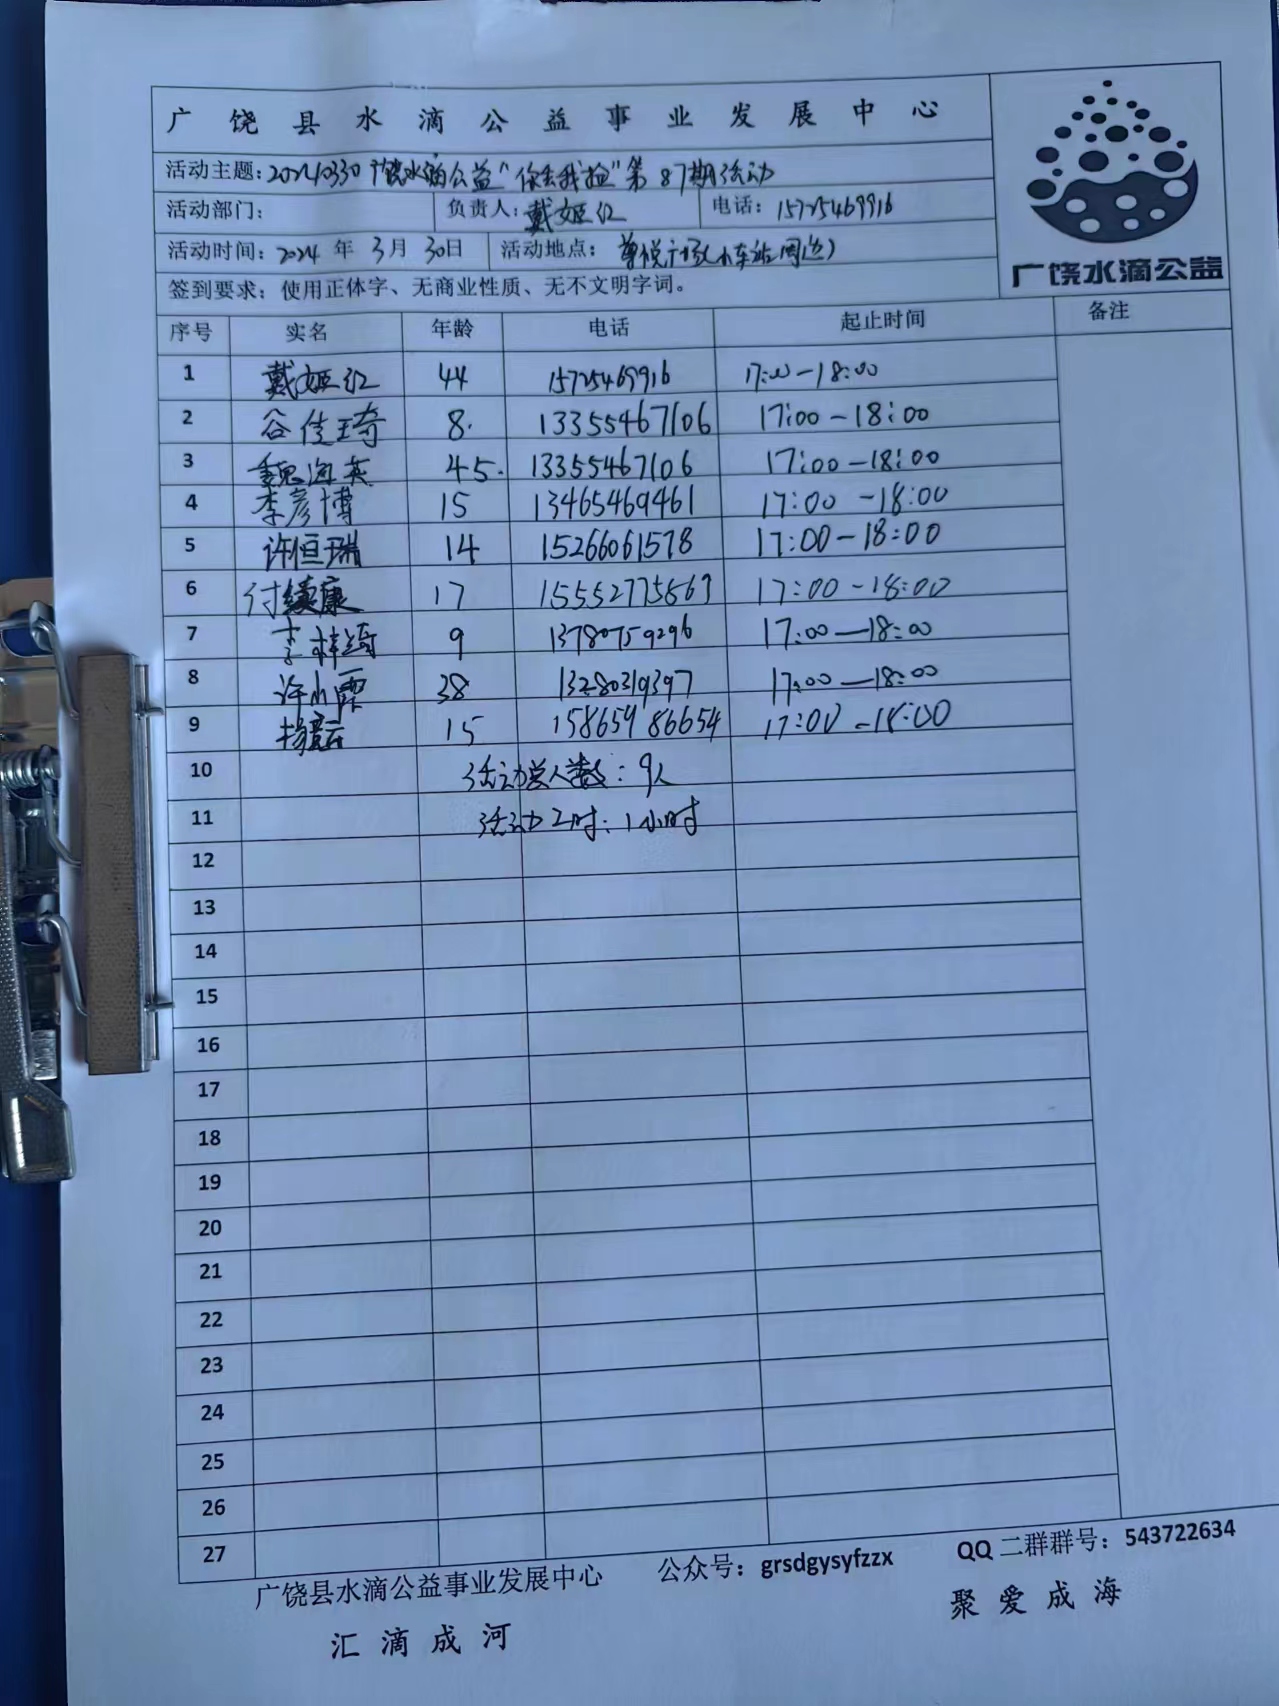 广饶县水滴公益事业发展中心
活动主题:20240330广饶水滴公益"你丢我捡"第87期活动
活动部门: 负责人: 戴姬红 电话: 15725469916
活动时间: 2024年3月30日 活动地点: 尊悦广场(小车站周边)
签到要求: 使用正体字、无商业性质、无不文明字词。
广饶水滴公益
序号 实名 年龄 电话 起止时间 备注
1 戴姬红 44 15725469916 17:00-18:00
2 谷佳琦 8. 13355467106 17:00-18:00
3 魏海英 45. 13355467106 17:00-18:00
4 李彦博 15 13465469461 17:00-18:00
5 许恒瑞 14 15266061578 17:00-18:00
6 付续康 17 15552775563 17:00-18:00
7 李梓 9 13780759296 17:00-18:00
8 许小霞 38 13280319397 17:00-18:00
9 15 15865986654 17:00-18:00
10 活动总人数: 9人
11 活动工时: 1小时
12
13
14
15
16
17
18
19
20
21
22
23
24
25
26
27
广饶县水滴公益事业发展中心 公众号: grsdgysyfzzx QQ二群群号: 543722634
汇滴成河 聚爱成海